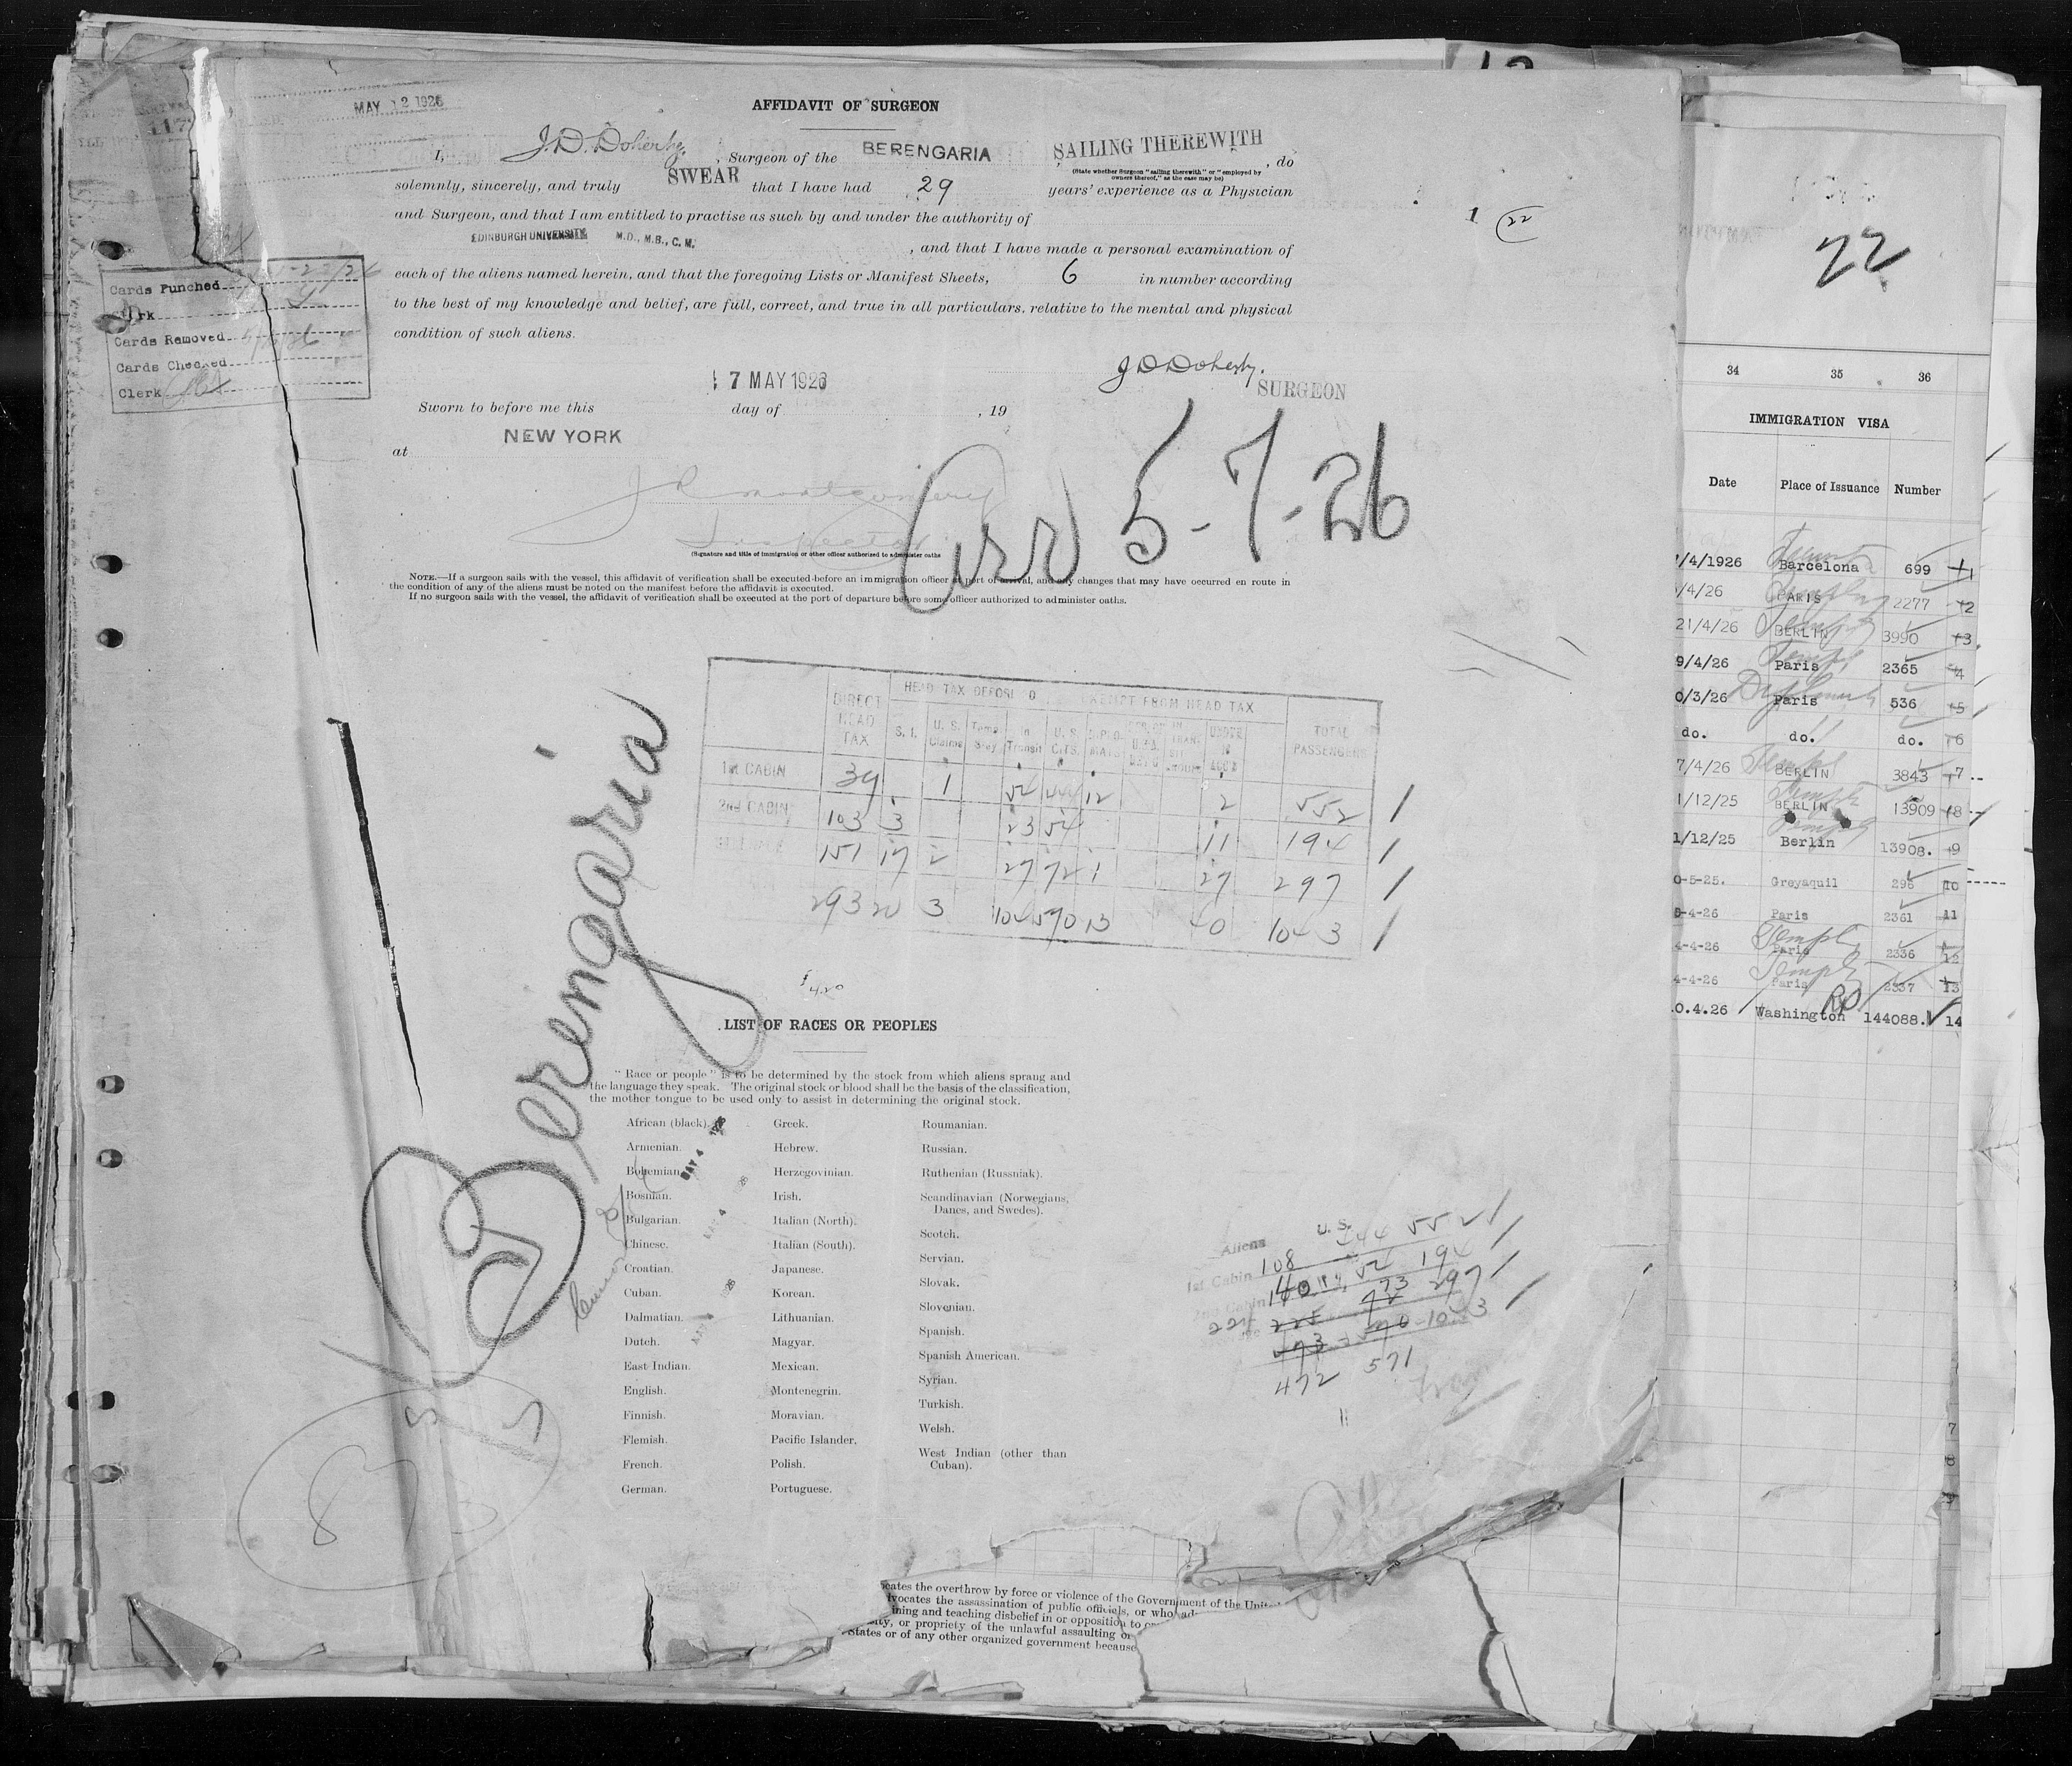 MAY 12 1926
AFFIDAVIT OF SURGEON
I, J.D. Doherty, Surgeon of the BERENGARIA SAILING THEREWITH, do
(State whether Surgeon "sailing therewith" or "employed by
owners thereof," as the case may be)
solemnly, sincerely, and truly SWEAR that I have had 29 years' experience as a Physician
and Surgeon, and that I am entitled to practise as such by and under the authority of
EDINBURGH UNIVERSITY M.D., M.B., C.M. , and that I have made a personal examination of
each of the aliens named herein, and that the foregoing Lists or Manifest Sheets, 6 in number according
to the best of my knowledge and belief, are full, correct, and true in all particulars, relative to the mental and physical
condition of such aliens.
J D Doherty.
SURGEON
Cards Punched
Clerk
Cards Removed
Cards Checked
Clerk
Sworn to before me this 7 MAY 1926 day of , 19
at NEW YORK
J R Montgomery
Inspector
(Signature and title of immigration or other officer authorized to administer oaths
Arr 5-7-26
NOTE.—If a surgeon sails with the vessel, this affidavit of verification shall be executed before an immigration officer at port of arrival, and any changes that may have occurred en route in
the condition of any of the aliens must be noted on the manifest before the affidavit is executed.
If no surgeon sails with the vessel, the affidavit of verification shall be executed at the port of departure before some officer authorized to administer oaths.
Berengaria
DIRECT HEAD TAX
HEAD TAX DEPOSITED
EXEMPT FROM HEAD TAX
TOTAL PASSENGERS
S. I. U. S. Claims Temp Stay In Transit U. S. CITS. DIPLO- MATS UNDER 16 ACC'D
1st CABIN 39 1 54 444 12 2 552
2nd CABIN 103 3 23 54 11 194
151 17 2 27 72 1 27 297
293 20 3 104 570 13 40 1043
LIST OF RACES OR PEOPLES
"Race or people" is to be determined by the stock from which aliens sprang and
the language they speak. The original stock or blood shall be the basis of the classification,
the mother tongue to be used only to assist in determining the original stock.
African (black).
Armenian.
Bohemian.
Bosnian.
Bulgarian.
Chinese.
Croatian.
Cuban.
Dalmatian.
Dutch.
East Indian.
English.
Finnish.
Flemish.
French.
German.
Greek.
Hebrew.
Herzegovinian.
Irish.
Italian (North).
Italian (South).
Japanese.
Korean.
Lithuanian.
Magyar.
Mexican.
Montenegrin.
Moravian.
Pacific Islander.
Polish.
Portuguese.
Roumanian.
Russian.
Ruthenian (Russniak).
Scandinavian (Norwegians,
Danes, and Swedes).
Scotch.
Servian.
Slovak.
Slovenian.
Spanish.
Spanish American.
Syrian.
Turkish.
Welsh.
West Indian (other than
Cuban).
Aliens U. S.
1st Cabin 108 444 552
2nd Cabin 140 54 194
224 73 297
1043
472 571
ocates the overthrow by force or violence of the Government of the Unit
dvocates the assassination of public officials, or who ad
ining and teaching disbelief in or opposition to
ty, or propriety of the unlawful assaulting or
States or of any other organized government because
1 22
22
34 35 36
IMMIGRATION VISA
Date Place of Issuance Number
/4/1926 Barcelona 699 1
/4/26 PARIS 2277 2
21/4/26 BERLIN 3990 3
9/4/26 Paris 2365 4
0/3/26 Paris 536 5
do. do. do. 6
7/4/26 BERLIN 3843 7
1/12/25 BERLIN 13909 8
1/12/25 Berlin 13908. 9
0-5-25. Greyaquil 296 10
8-4-26 Paris 2361 11
4-4-26 Paris 2336 12
4-4-26 Paris 2337 13
0.4.26 Washington RP 144088. 14